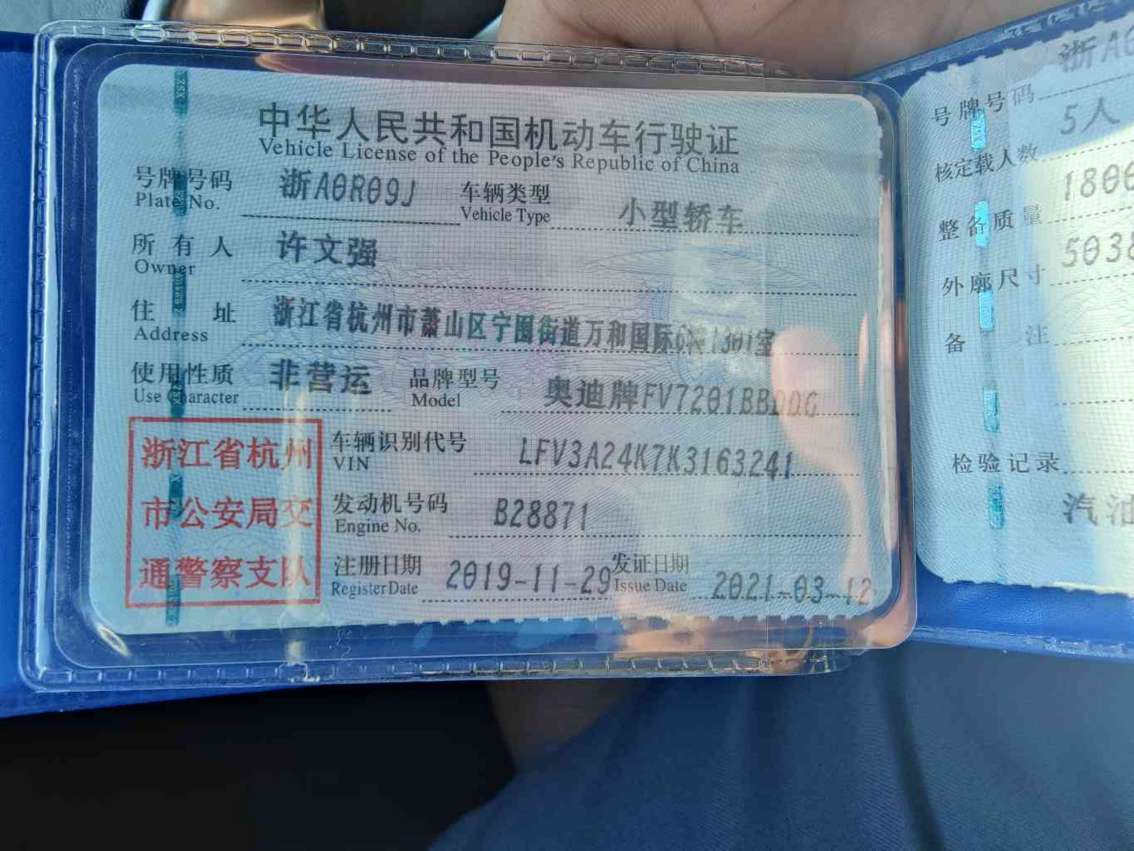 中华人民共和国机动车行驶证
Vehicle License of the People's Republic of China
号牌号码 浙A0R09J 车辆类型 小型轿车
Plate No. Vehicle Type
所有人 许文强
Owner
住址 浙江省杭州市萧山区宁围街道万和国际 1301室
Address
使用性质 非营运 品牌型号 奥迪牌FV7201BBDDG
Use Character Model
浙江省杭州
市公安局交
通警察支队
车辆识别代号 LFV3A24K7K3163241
VIN
发动机号码 B28871
Engine No.
注册日期 2019-11-29 发证日期 2021-03-12
Register Date Issue Date
号牌号码 浙A0
核定载人数 5人
整备质量 1800
外廓尺寸 5038
备注
检验记录
汽油